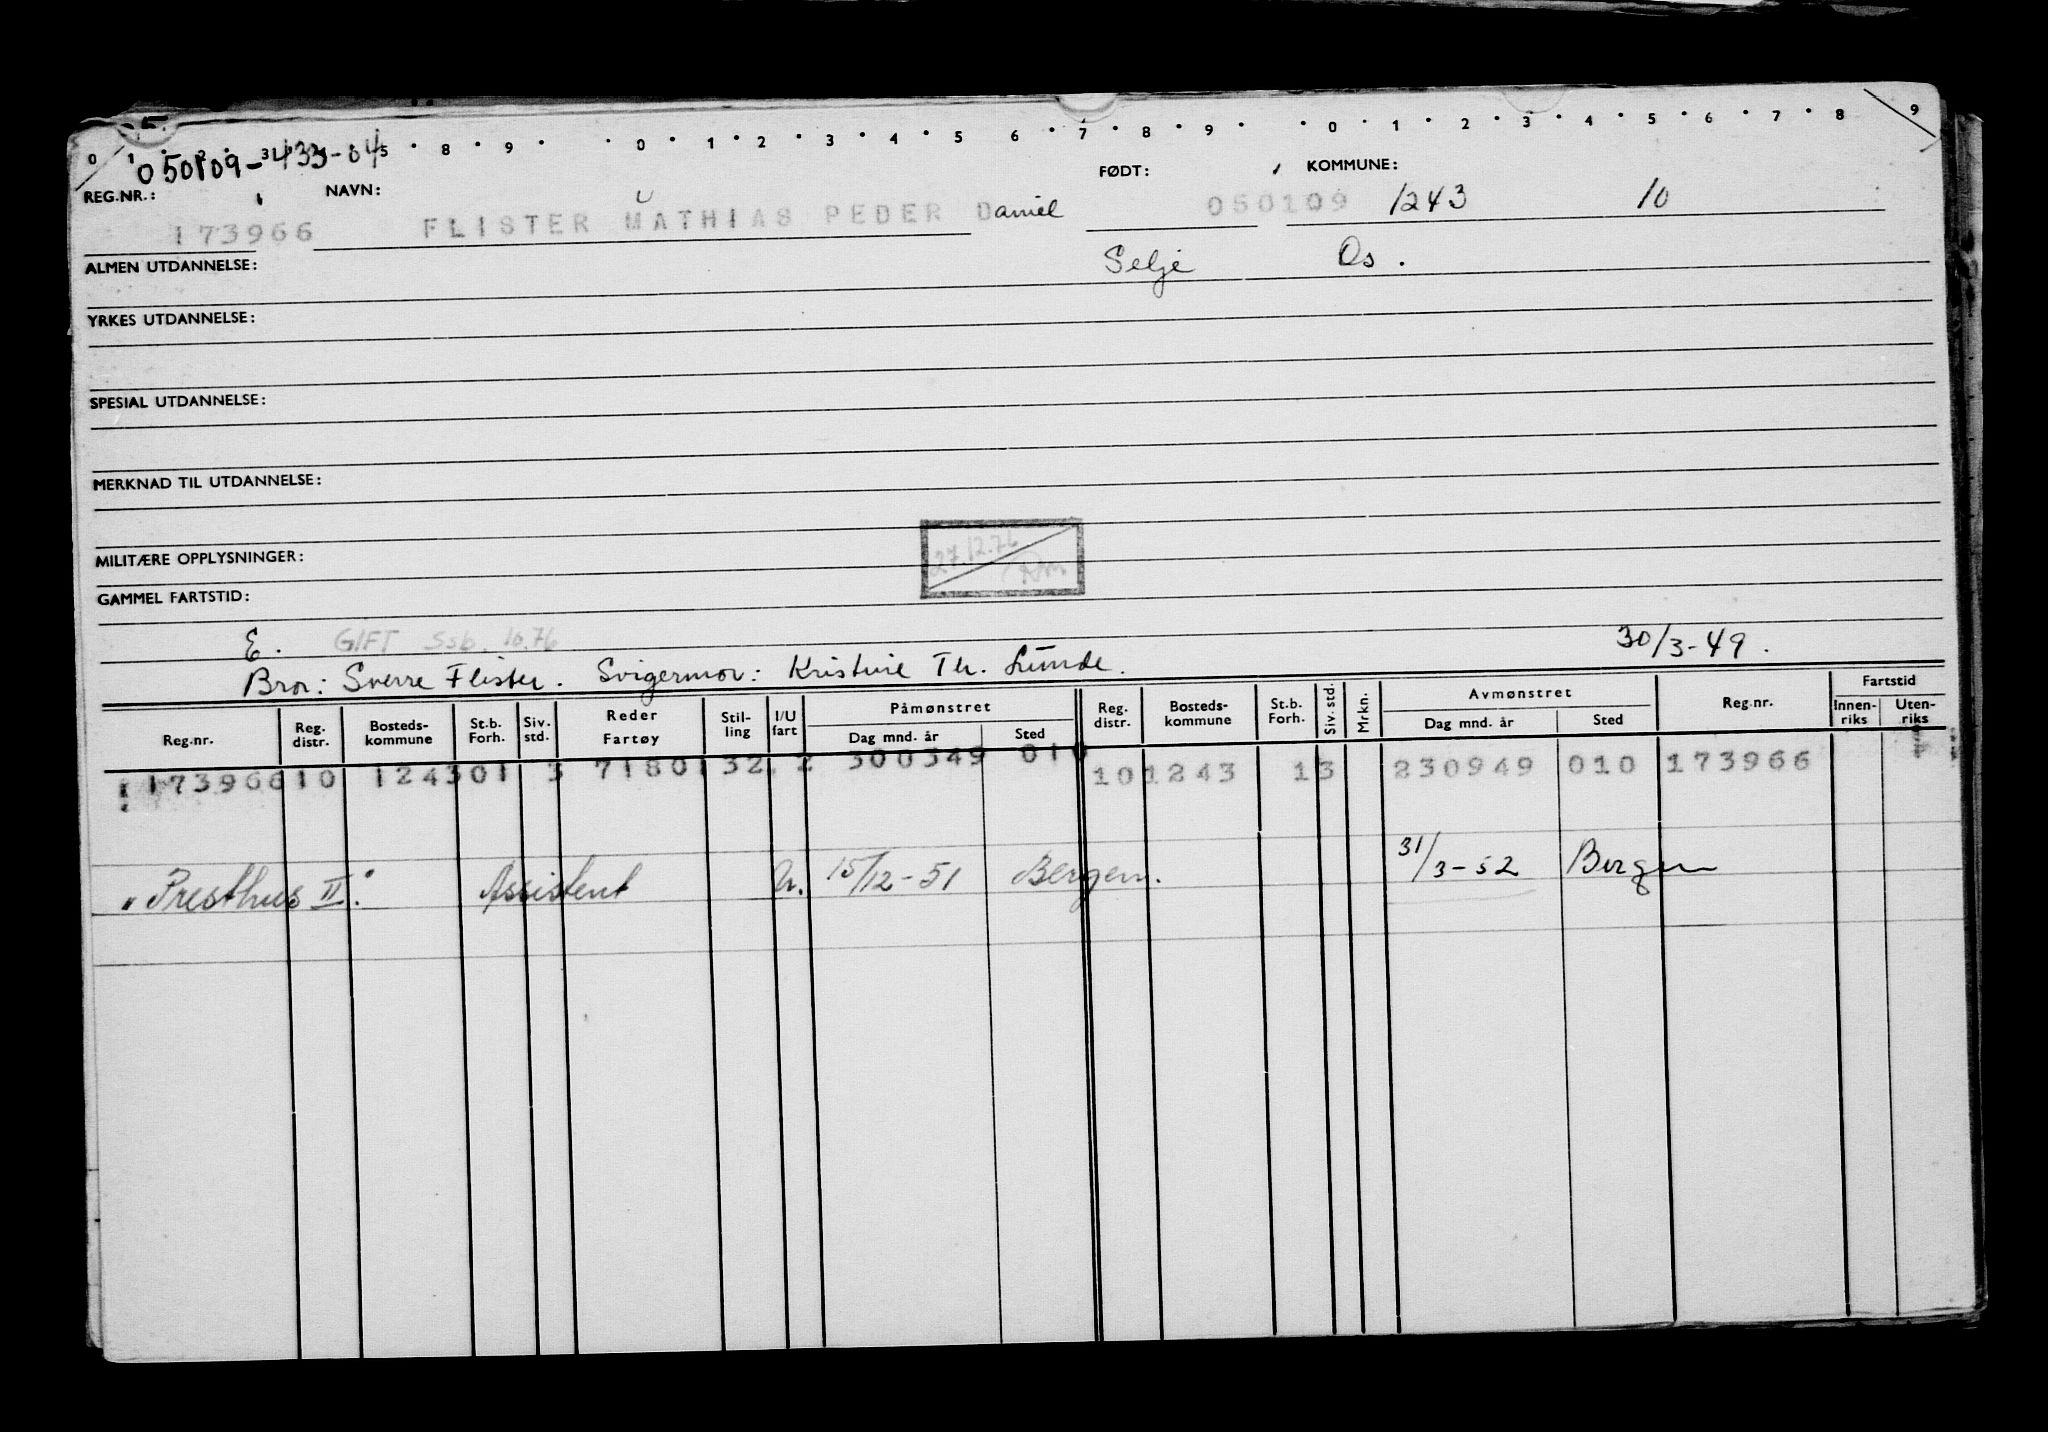 0 1 2 3 4 5 8 9 0 1 2 3 4 5 6 7 8 9 0 1 2 3 4 5 6 7 8 9
050109-433-04
REG.NR.: NAVN: FØDT: KOMMUNE:
173966 FLISTER MATHIAS PEDER Daniel 050109 1243 10
ALMEN UTDANNELSE: Selje Os.
YRKES UTDANNELSE:
SPESIAL UTDANNELSE:
MERKNAD TIL UTDANNELSE:
27.12.76
MILITÆRE OPPLYSNINGER:
GAMMEL FARTSTID:
E. GIFT Ssb. 10.76 30/3-49.
Bror: Sverre Flister. Svigermor: Kristine Th. Lunde.
Reg.nr. Reg. distr. Bosteds-kommune St.b. Forh. Siv. std. Reder Fartøy Stil-ling I/U fart Påmønstret Dag mnd. år Sted Reg. distr. Bosteds-kommune St.b. Forh. Siv. std. Mrkn. Avmønstret Dag mnd. år Sted Reg.nr. Fartstid Innen-riks Uten-riks
173966 10 1243 01 3 71801 32 2 300349 010 10 1243 1 3 230949 010 173966
"Presthus II." Assistent U. 15/12-51 Bergen. 31/3-52 Bergen